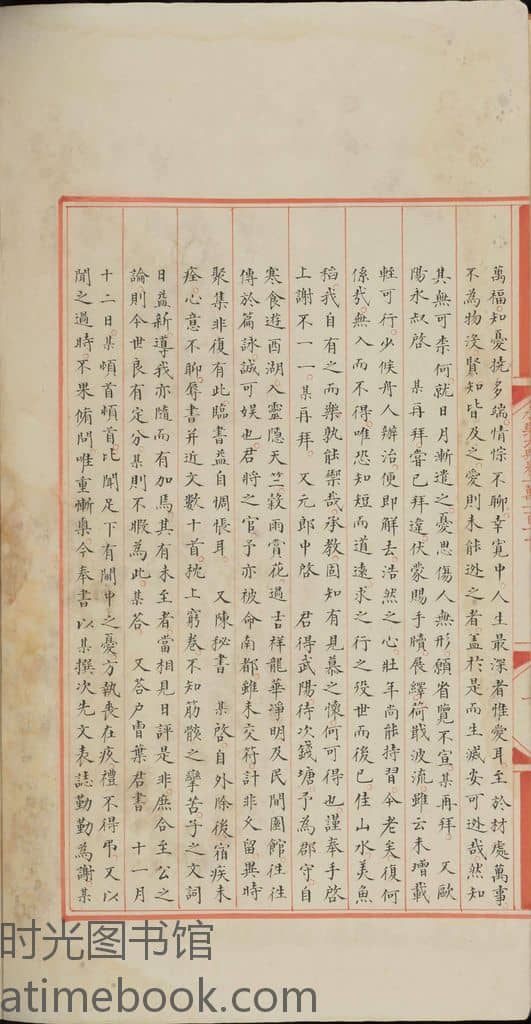 萬福知憂撓多端情悰不聊幸寬中人生最深者惟愛耳至於材處萬事
不為物沒賢知皆及之愛則未能逃之者蓋於是而生滅安可逃哉然知
其無可柰何就日月漸遣之憂思傷人無形願省覽不宣某再拜 又歐
陽永叔啓 某再拜嘗已拜違伏蒙賜手牘展繹荷戢波流雖云未增載
輕可行少候舟人辦治便即解去浩然之心壯年尚能持習今老矣復何
係哉無入而不得唯恐知短而道遠求之行之歿世而後已佳山水美魚
稻我自有之而樂孰能禦哉承教固知有見慕之懷何可得也謹奉手啓
上謝不一一某再拜 又元郎中啓 君得武陽待次錢塘予為郡守自
寒食遊西湖入靈隱天竺穀雨賞花過吉祥龍華淨明及民間園館往往
傳於篇詠誠可娛也君將之官予亦被命南都雖未交符計非久留異時
聚集非復有此臨書益自惆悵耳 又陳秘書 某啓自外除後宿疾未
痊心意不聊辱書并近文數十首枕上窮卷不知筋骸之攣苦子之文詞
日益新導我亦隨而有加焉其有未至者當相見日評是非庶合至公之
論則今世良有定分某則不暇為此某荅 又荅户曹葉君書 十一月
十二日某頓首頓首比聞足下有閫中之憂方執喪在疚禮不得弔又以
聞之過時不果脩問唯重慚奭今奉書以某撰次先文表誌勤勤為謝某
时光图书馆
atimebook.com